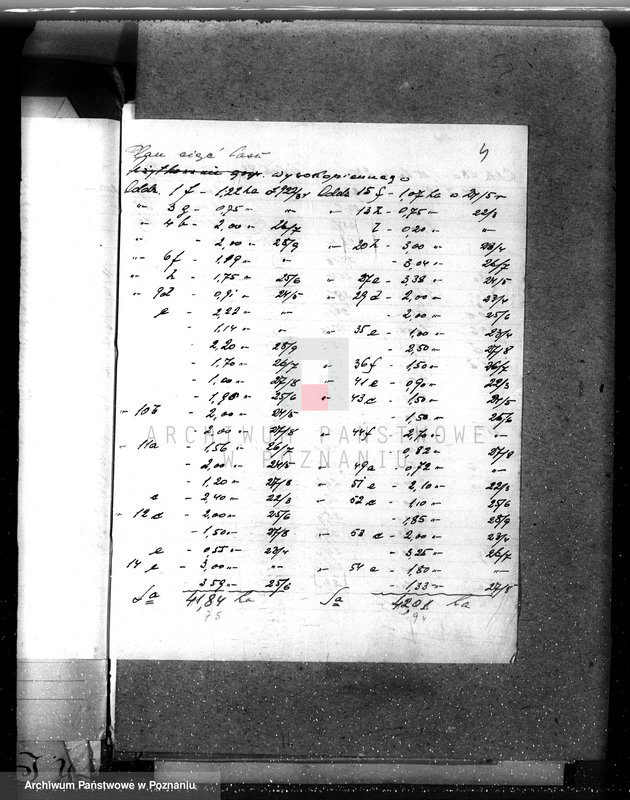 4
Plan cięć lasu
wysokopiennego
Oddz. 1 f - 1,22 ha Oddz. 15 f - 1,07 ha 24/5 r
" 3 g - 0,75 " " " 13 h - 0,75 " 22/3
" 4 b - 2,00 " 26/7 - 0,20 " "
" - 2,00 " 28/9 " 20 h - 3,00 " 23/4
" 6 f - " " - 3,04 " 26/7
" h - 1,75 " 25/6 " 27 - 3,38 " 24/5
" 9 d - 0,91 " 24/5 " 29 d - 2,00 " 23/4
e - 2,22 " " - 2,00 " 25/6
- 1,14 " " " 35 e - 1,00 " 23/4
- 2,20 " 28/9 - 2,50 " 27/8
- 1,70 " 26/7 " 36 f - 1,50 " 26/7
- 1,00 " 27/8 " 41 e - 0,90 " 22/3
- 25/6 " 43 c - 1,50 " 24/5
" 10 b - 2,00 " 24/5 - 1,50 " 25/6
- 2,00 " 27/8 " 44 f - 2,70 " "
" 11 a - 1,56 " 26/7 - 0,82 " 27/8
- 2,00 " 24/5 " 49 a - 0,72 " "
- 1,20 " 27/8 " 51 e - 2,10 " 22/3
c - 2,40 " 22/3 " 52 c - 1,10 " 25/6
" 12 c - 2,00 " 25/6 - 1,85 " 28/9
- 1,50 " 27/8 " 53 c - 2,00 " 23/4
e - 0,55 " 23/4 - 3,25 " 26/7
14 e - 3,00 " " " 54 a - 1,80 " "
3,59 " 25/6 - 1,33 " 27/8
Sa 41,84 ha Sa 42,01 ha
75 94
ARCHIWUM PAŃSTWOWE
W POZNANIU
Archiwum Państwowe w Poznaniu